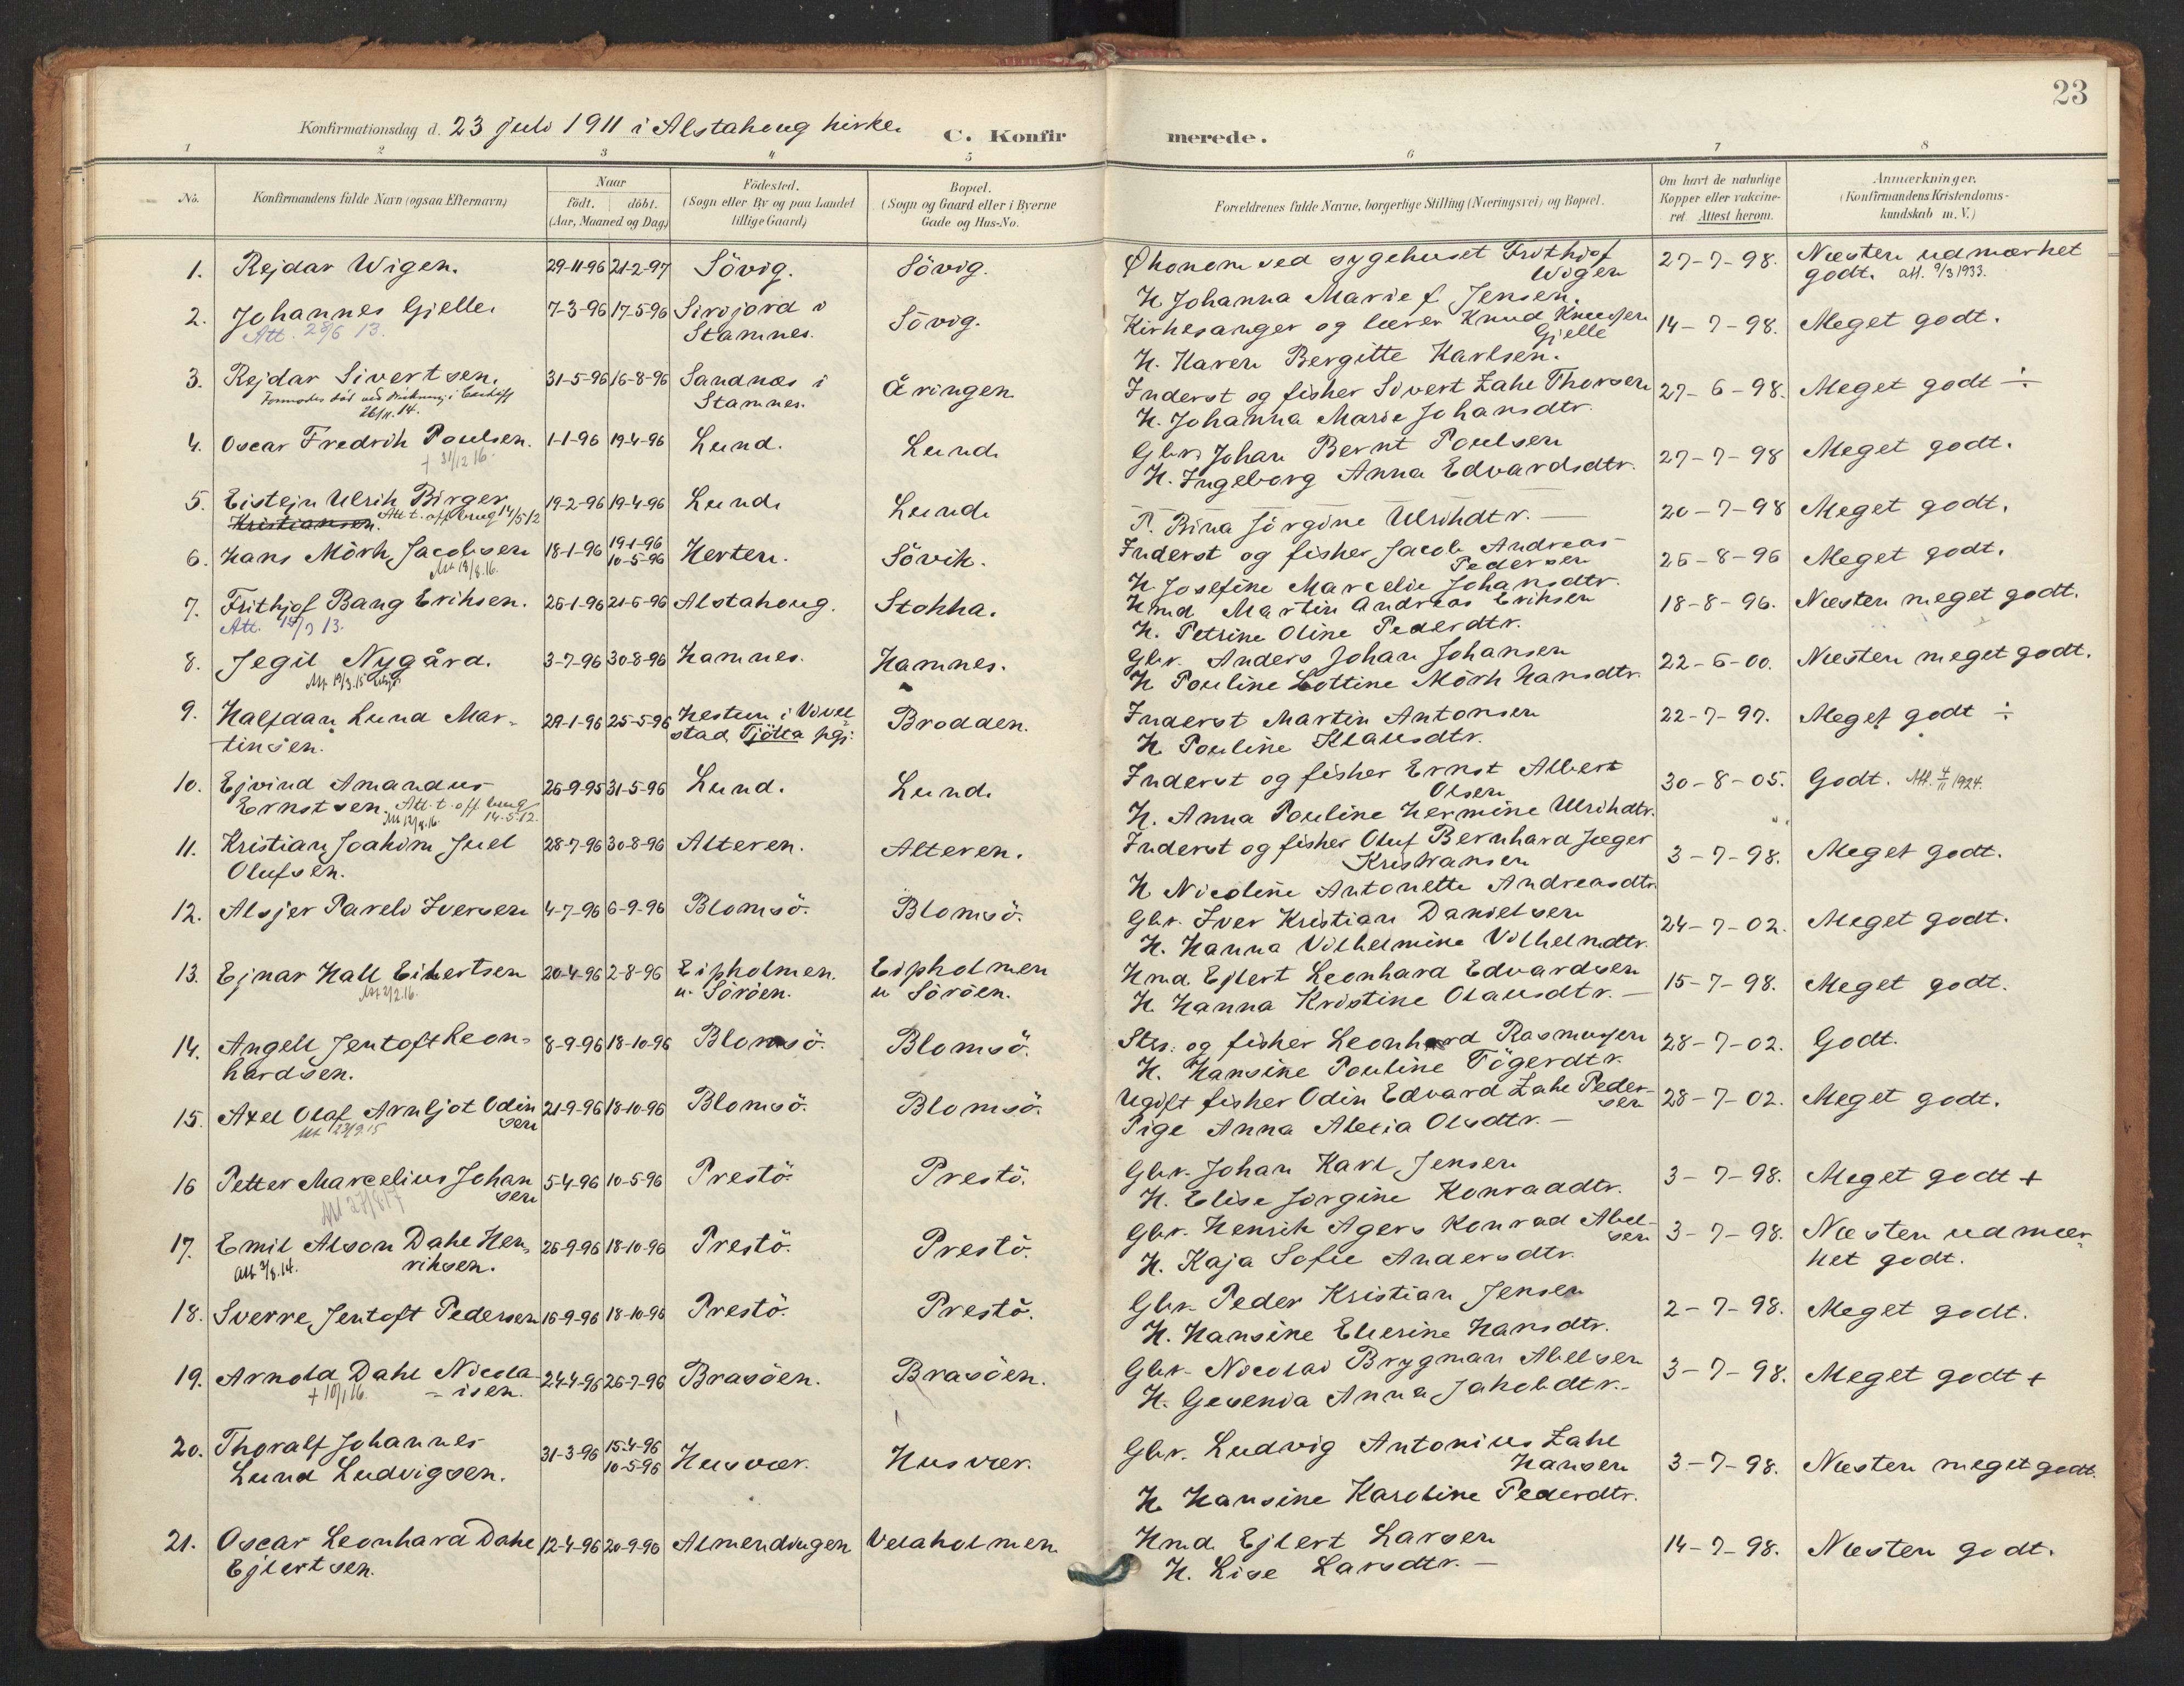 23
Konfirmationsdag d. 23 juli 1911 i Alstahoug kirke.
C. Konfirmerede.
1 2 3 4 5 6 7 8
No.
Konfirmandens fulde Navn (ogsaa Efternavn)
Naar
født. døbt.
(Aar, Maaned og Dag)
Födested.
(Sogn eller By og paa Landet
tillige Gaard)
Bopæl.
(Sogn og Gaard eller i Byerne
Gade og Hus-No.
Forældrenes fulde Navne, borgerlige Stilling (Næringsvei) og Bopæl.
Om havt de naturlige
Kopper eller vakcine-
ret. Attest herom.
Anmærkninger.
(Konfirmandens Kristendoms-
kundskab m.V.)
1. Rejdar Wigen. 29-11-96 21-2-97 Sövig. Sövig. Økonom ved sygehuset Frithjof
Wigen
H. Johanna Marie f. Jensen. 27-7-98. Næsten udmærket
godt. att. 9/3 1933.
2. Johannes Gjelle. 7-3-96 17-5-96 Sirijord i
Stamnes. Sövig. Kirkesanger og lærer Knud Knudsen
Gjelle
H. Karen Bergitte Karlsen. 14-7-98. Meget godt.
Att. 28/6 13.
3. Rejdar Sivertsen. 31-5-96 16-8-96 Sandnes i
Stamnes. Åringen Inderst og fisker Sivert Zahl Thorsen
H. Johanna Marie Johansdtr. 27-6-98. Meget godt ÷
26/11.14.
4. Oscar Fredrik Poulsen. 1-1-96 19-4-96 Lund. Lund. Gbr. Johan Bernt Poulsen
H. Ingeborg Anna Edvardsdtr. 27-7-98 Meget godt.
+ 31/12 16.
5. Eistejn Ulrik Birger
Kristiansen. Att t. off. brug 14/5 12 19-2-96 19-4-96 Lund. Lund. P. Rina Jörgine Ulrikdtr. — 20-7-98 Meget godt.
6. Hans Mörk Jacobsen 18-1-96 19-1-96
10-5-96 Herten. Sövik. Inderst og fisker Jacob Andreas
Pedersen
H. Josefine Marcelie Johansdtr. 26-8-96 Meget godt.
Att 18/8.16.
7. Frithjof Bang Eriksen. 26-1-96 21-6-96 Alstahoug. Stokka. Hmd Martin Andreas Eriksen
H. Petrine Oline Pederdtr. 18-8-96. Næsten meget godt.
8. Jegil Nygård. 3-7-96 30-8-96 Hamnes. Hamnes. Gbr. Anders Johan Johansen
H Pouline Lottine Mörk Hansdtr. 22-6-00. Næsten meget godt.
9. Halfdan Lund Mar-
tinsen. 29-1-96 25-5-96 Hestun i Vivel
stad Tjötta pgj: Brodden. Inderst Martin Antonsen
H Pouline Klausdtr. 22-7-97. Meget godt ÷
10. Ejvind Amandus
Ernstsen. Att. t. off brug
14.5.12. 26-9-95 31-5-96 Lund. Lund. Inderst og fisker Ernst Albert
Olsen
H. Anna Pouline Hermine Ulrikdtr. 30-8-05. Godt. Att. 4/11 1924.
11. Kristian Joakim Juel
Olufsen. 28-7-96 30-8-96 Alteren. Alteren. Inderst og fisker Oluf Bernhard Jæger
Kristiansen
H Nicoline Antonette Andreasdtr. 3-7-98. Meget godt.
12. Alsjer Pareli Iversen 4-7-96 6-9-96 Blomsö. Blomsö. Gbr. Iver Kristian Danielsen
H. Hanna Vilhelmine Vilhelmdtr. 24-7-02. Meget godt.
13. Ejnar Hall Eilertsen 20-4-96 2-8-96 Eipholmen
u. Söröen. Eipholmen
u Söröen. Hmd Ejlert Leonhard Edvardsen
H. Hanna Kristine Olausdtr. — 15-7-98. Meget godt.
Att 2/2.16.
14. Angell Jentoft Leon-
hardsen. 8-9-96 18-10-96 Blomsö. Blomsö. Strs. og fisker Leonhard Rasmusen
H. Hansine Pouline Tögerdtr. 28-7-02. Godt.
15. Axel Olaf Arnljot Odin
sen 21-9-96 18-10-96 Blomsö. Blomsö. Ugift fisker Odin Edvard Zahl Peder-
sen
Pige Anna Alexia Olsdtr. — 28-7-02. Meget godt.
Att 23/9 15
16 Petter Marcelius Johan
sen 5-4-96 10-5-96 Prestö. Prestö. Gbr. Johan Karl Jensen
H. Elise Jörgine Konraddtr. 3-7-98. Meget godt +
Att 27/8 17
17. Emil Alson Dahl Hen-
riksen. 26-9-96 18-10-96 Prestö. Prestö. Gbr. Henrik Agers Konrad Abel-
sen
H. Kaja Sofie Andersdtr. 3-7-98. Næsten udmær-
ket godt.
att 3/8.14.
18. Sverre Jentoft Pedersen 16-9-96 18-10-96 Prestö. Prestö. Gbr. Peder Kristian Jensen
H. Hansine Elierine Hansdtr. 2-7-98. Meget godt.
19. Arnold Dahl Nicola-
isen. 24-4-96 26-7-96 Brasöen. Brasöen. Gbr. Nicolai Brygman Abelsen
H. Gesenia Anna Jakobdtr.- 3-7-98. Meget godt +
+ 10/1 16.
20. Thoralf Johannes
Lund Ludvigsen. 31-3-96 15-4-96
10-5-96 Husvær. Husvær. Gbr. Ludvig Antonius Zahl
Hansen
H Hansine Karoline Pederdtr. 3-7-98. Næsten meget godt.
21. Oscar Leonhard Dahl
Ejlertsen. 12-4-96 20-9-96 Almendingen Velaholmen Hmd. Ejlert Larsen
H. Lise Larsdtr. — 14-7-98. Næsten godt.